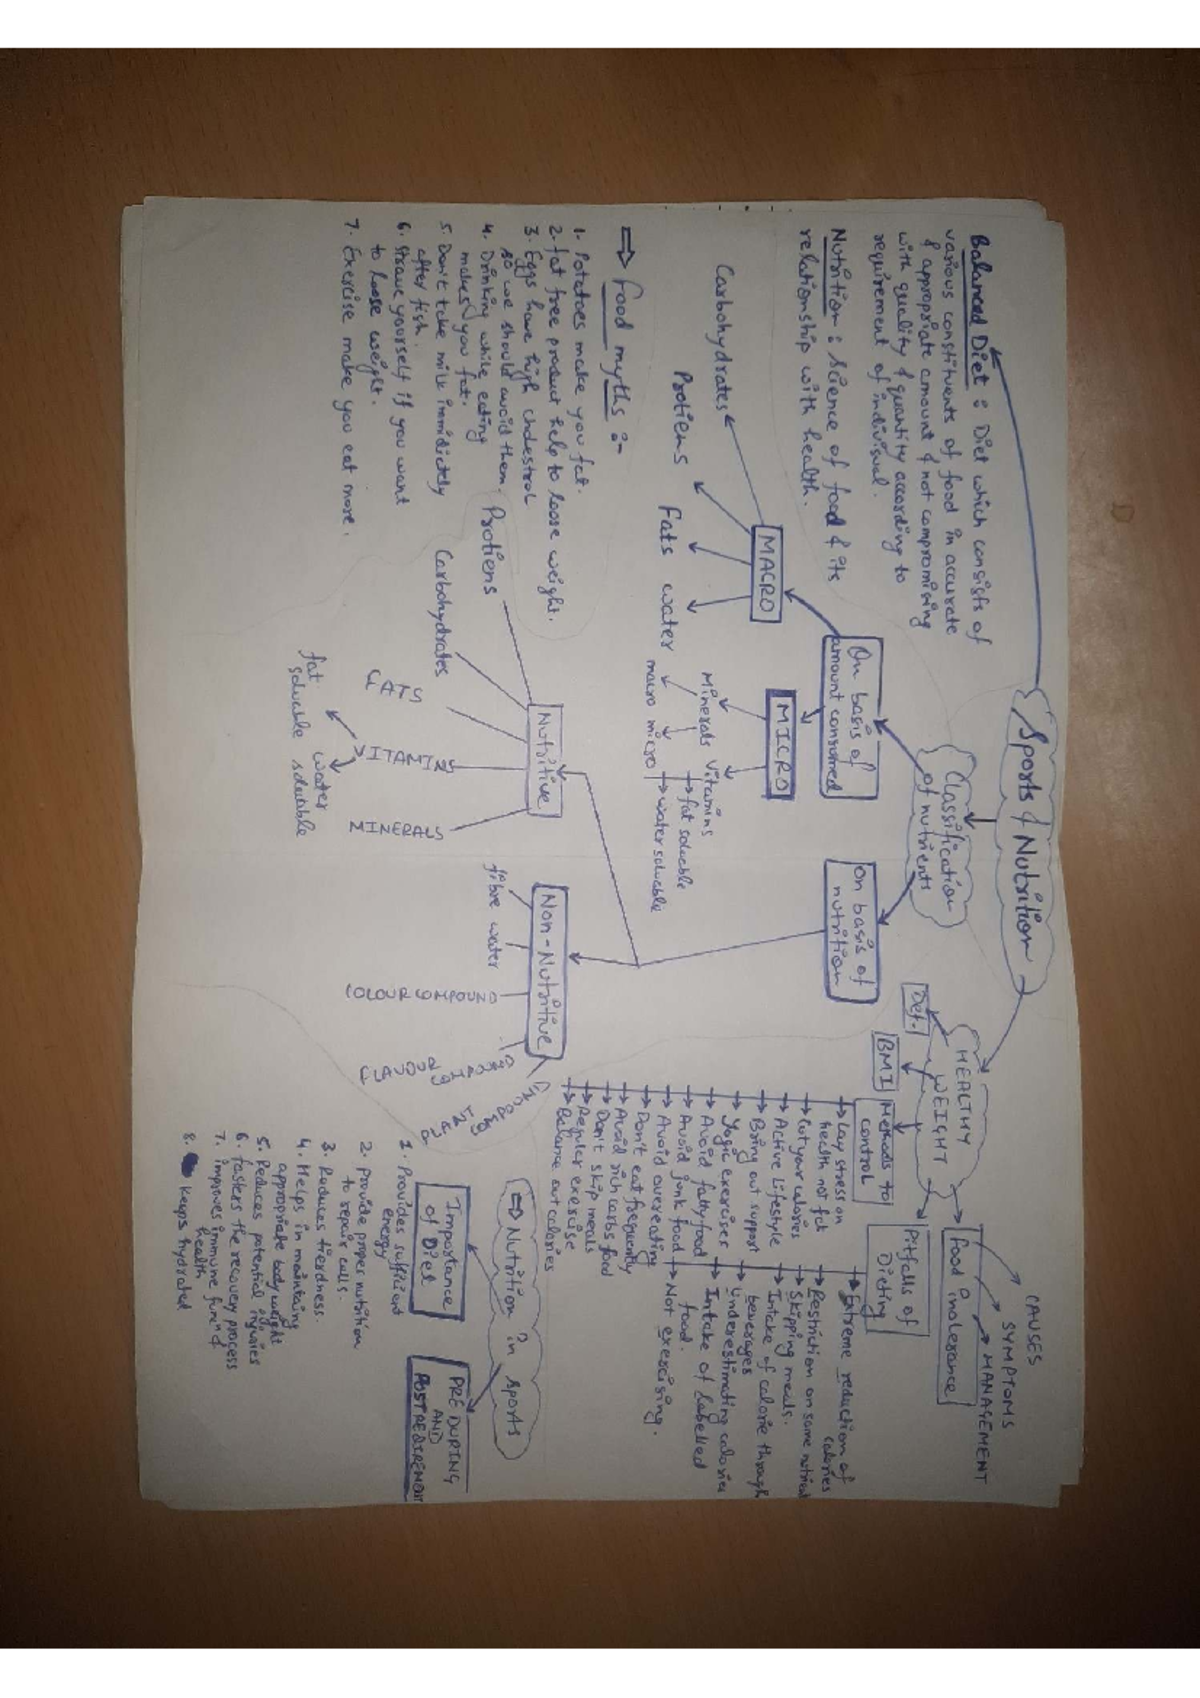 Sports & Nutrition
Balanced Diet : Diet which consists of
various constituents of food in accurate
& appropriate amount & not compromising
with quality & quantity according to
requirement of indivisual.
Nutrition : Science of food & its
relationship with health.
Classification
of nutrients
On basis of
amount consumed
MACRO
Carbohydrates
Protiens
Fats
water
MICRO
Minerals
macro micro
Vitamins
fat soluable
water soluable
On basis of
nutrition
Nutritive
Protiens
Carbohydrates
FATS
VITAMINS
fat
soluable
water
soluable
MINERALS
Non-Nutritive
fibre
water
COLOUR COMPOUND
FLAVOUR COMPOUND
PLANT COMPOUND
⇒ food myths :-
1. Potatoes make you fat.
2. fat free product help to loose weight.
3. Eggs have high cholestrol
so we should avoid them.
4. Drinking while eating
makes you fat.
5. Don't take milk immidietly
after fish.
6. Strave yourself if you want
to loose weight.
7. Exercise make you eat more.
HEALTHY
WEIGHT
Def.
BMI
Methods to
control
→ Lay stress on
health not fat
→ Cut your calories
→ Active lifestyle
→ Bring out support
→ Yogic exercises
→ Avoid fatty food
→ Avoid junk food
→ Avoid overeating
→ Don't eat frequently
→ Avoid rich carbs food
→ Don't skip meals
→ Regular exercise
→ Balance out calories
Pitfalls of
Dieting
→ Extreme reduction of
calories
→ Restriction on some nutrient
→ Skipping meals.
→ Intake of calorie through
beverages
→ Underestimating calories
→ Intake of labelled
food.
→ Not exercising.
food inolerance
CAUSES
SYMPTOMS
MANAGEMENT
⇒ Nutrition in sports
Importance
of Diet
1. Provides sufficient
energy
2. Provide proper nutrition
to repair cells.
3. Reduces tiredness.
4. Helps in maintaing
appropriate body weight
5. Reduces potential injuries
6. fasters the recovery process
7. improves immune funcn &
health
8. Keeps hydrated
PRE DURING
AND
POST REQUIREMENT